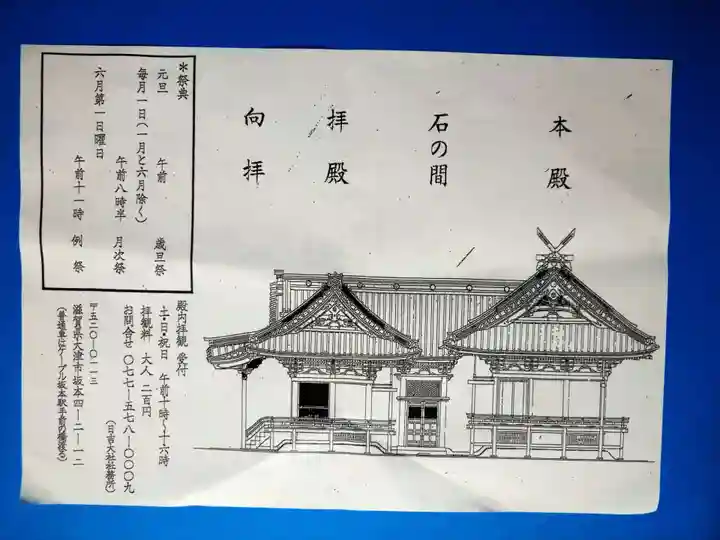 本殿
石の間
拝殿
向拝
＊祭典
元旦　午前　歳旦祭
毎月一日(一月と六月除く)
午前八時半　月次祭
六月第一日曜日
午前十一時　例祭
殿内拝観　受付
土・日・祝日　午前十時〜十六時
拝観料　大人　二百円
お問合せ　〇七七―五七八―〇〇〇九
(日吉大社社務所)
〒五二〇―〇一一三
滋賀県大津市坂本四―二―一二
(普通車はケーブル坂本駅手前の橋渡る)